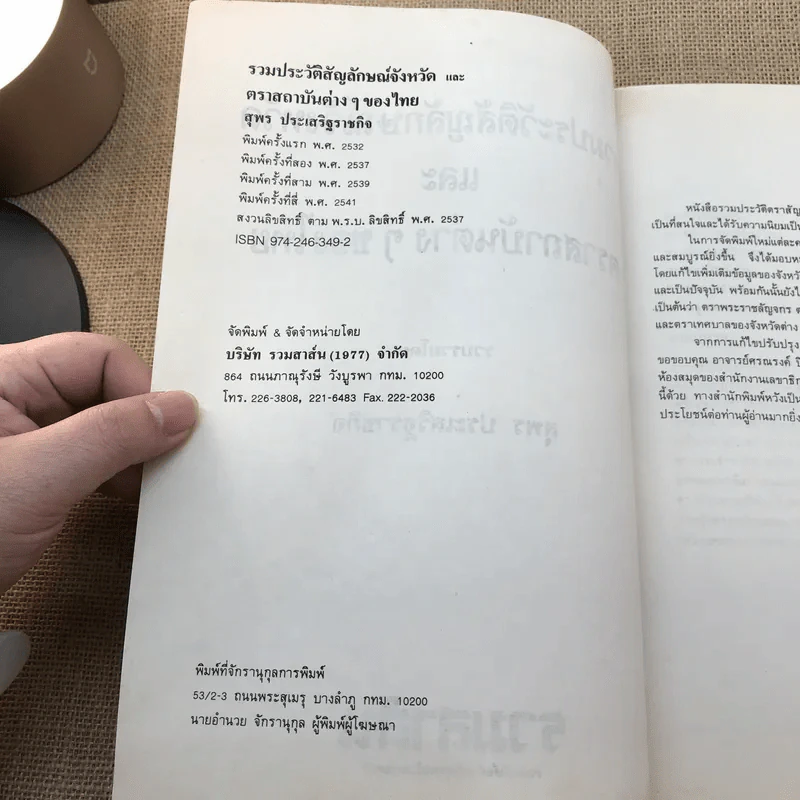 รวมประวัติสัญลักษณ์จังหวัด และ
ตราสถาบันต่าง ๆ ของไทย
สุพร ประเสริฐราชกิจ
พิมพ์ครั้งแรก พ.ศ. 2532
พิมพ์ครั้งที่สอง พ.ศ. 2537
พิมพ์ครั้งที่สาม พ.ศ. 2539
พิมพ์ครั้งที่สี่ พ.ศ. 2541
สงวนลิขสิทธิ์ ตาม พ.ร.บ. ลิขสิทธิ์ พ.ศ. 2537
ISBN 974-246-349-2
จัดพิมพ์ & จัดจำหน่ายโดย
บริษัท รวมสาส์น (1977) จำกัด
864 ถนนภาณุรังษี วังบูรพา กทม. 10200
โทร. 226-3808, 221-6483 Fax. 222-2036
พิมพ์ที่จักรานุกูลการพิมพ์
53/2-3 ถนนพระสุเมรุ บางลำภู กทม. 10200
นายอำนวย จักรานุกูล ผู้พิมพ์ผู้โฆษณา
หนังสือรวมประวัติตราสัญ
เป็นที่สนใจและได้รับความนิยมเป็น
ในการจัดพิมพ์ใหม่แต่ละค
และสมบูรณ์ยิ่งขึ้น จึงได้มอบห
โดยแก้ไขเพิ่มเติมข้อมูลของจังหวั
และเป็นปัจจุบัน พร้อมกันนั้นยังไ
เป็นต้นว่า ตราพระราชลัญจกร ต
และตราเทศบาลของจังหวัดต่าง
จากการแก้ไขปรับปรุง
ขอขอบคุณ อาจารย์ศรณรงค์ ปิ
ห้องสมุดของสำนักงานเลขาธิก
นี้ด้วย ทางสำนักพิมพ์หวังเป็น
ประโยชน์ต่อท่านผู้อ่านมากยิ่ง